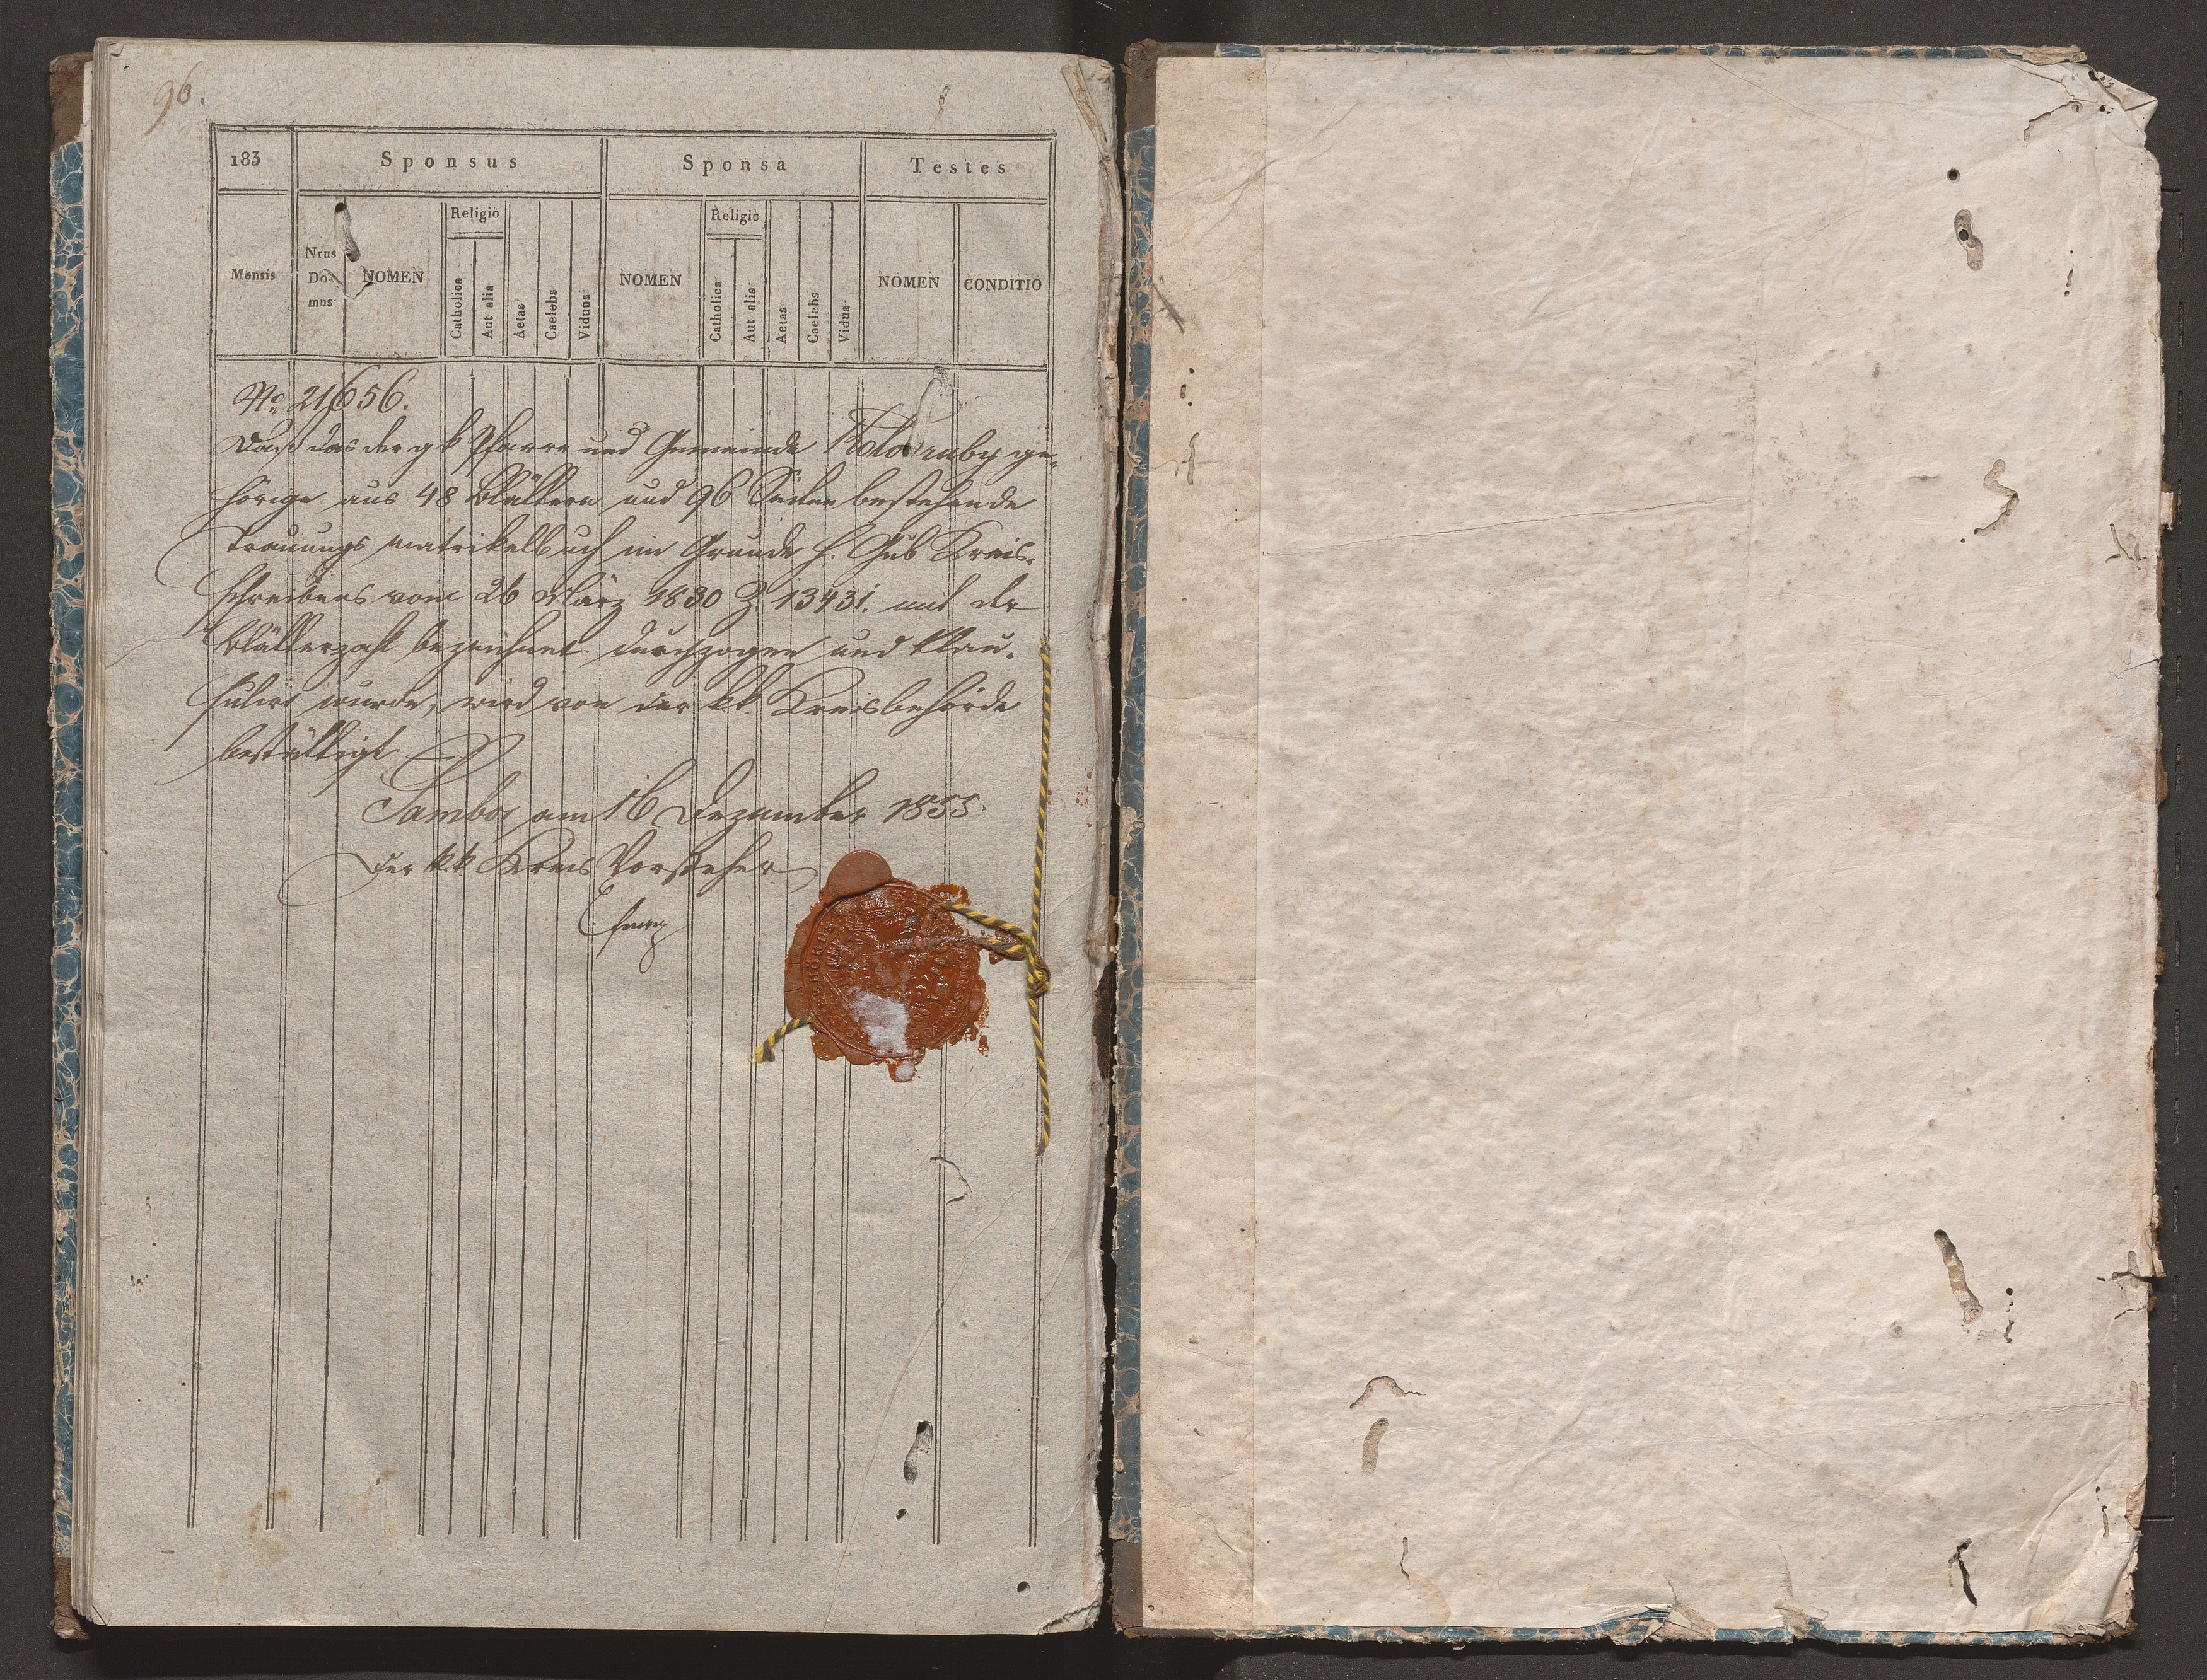 96.
183 Sponsus Sponsa Testes
Mensis Nrus Do- mus NOMEN Religio Catholica Aut alia Aetas Caelebs Viduus NOMEN Religio Catholica Aut alia Aetas Caelebs Vidua NOMEN CONDITIO
No. 21656.
Daß das der gk Pfarre und Gemeinde Kolodruby ge-
hörige aus 48 Blättern und 96 Seiten bestehende
Trauungs matrikelbuch im Grunde h. Gub Kreis-
schreibens vom 26 März 1830 Z. 13431. mit der
Blätterzahl bezeichnet durchzogen und klau-
sulirt wurde, wird von der kk. Kreisbehörde
bestättigt
Sambor am 16 Dezember 1855
Der k.k Kreis Vorsteher